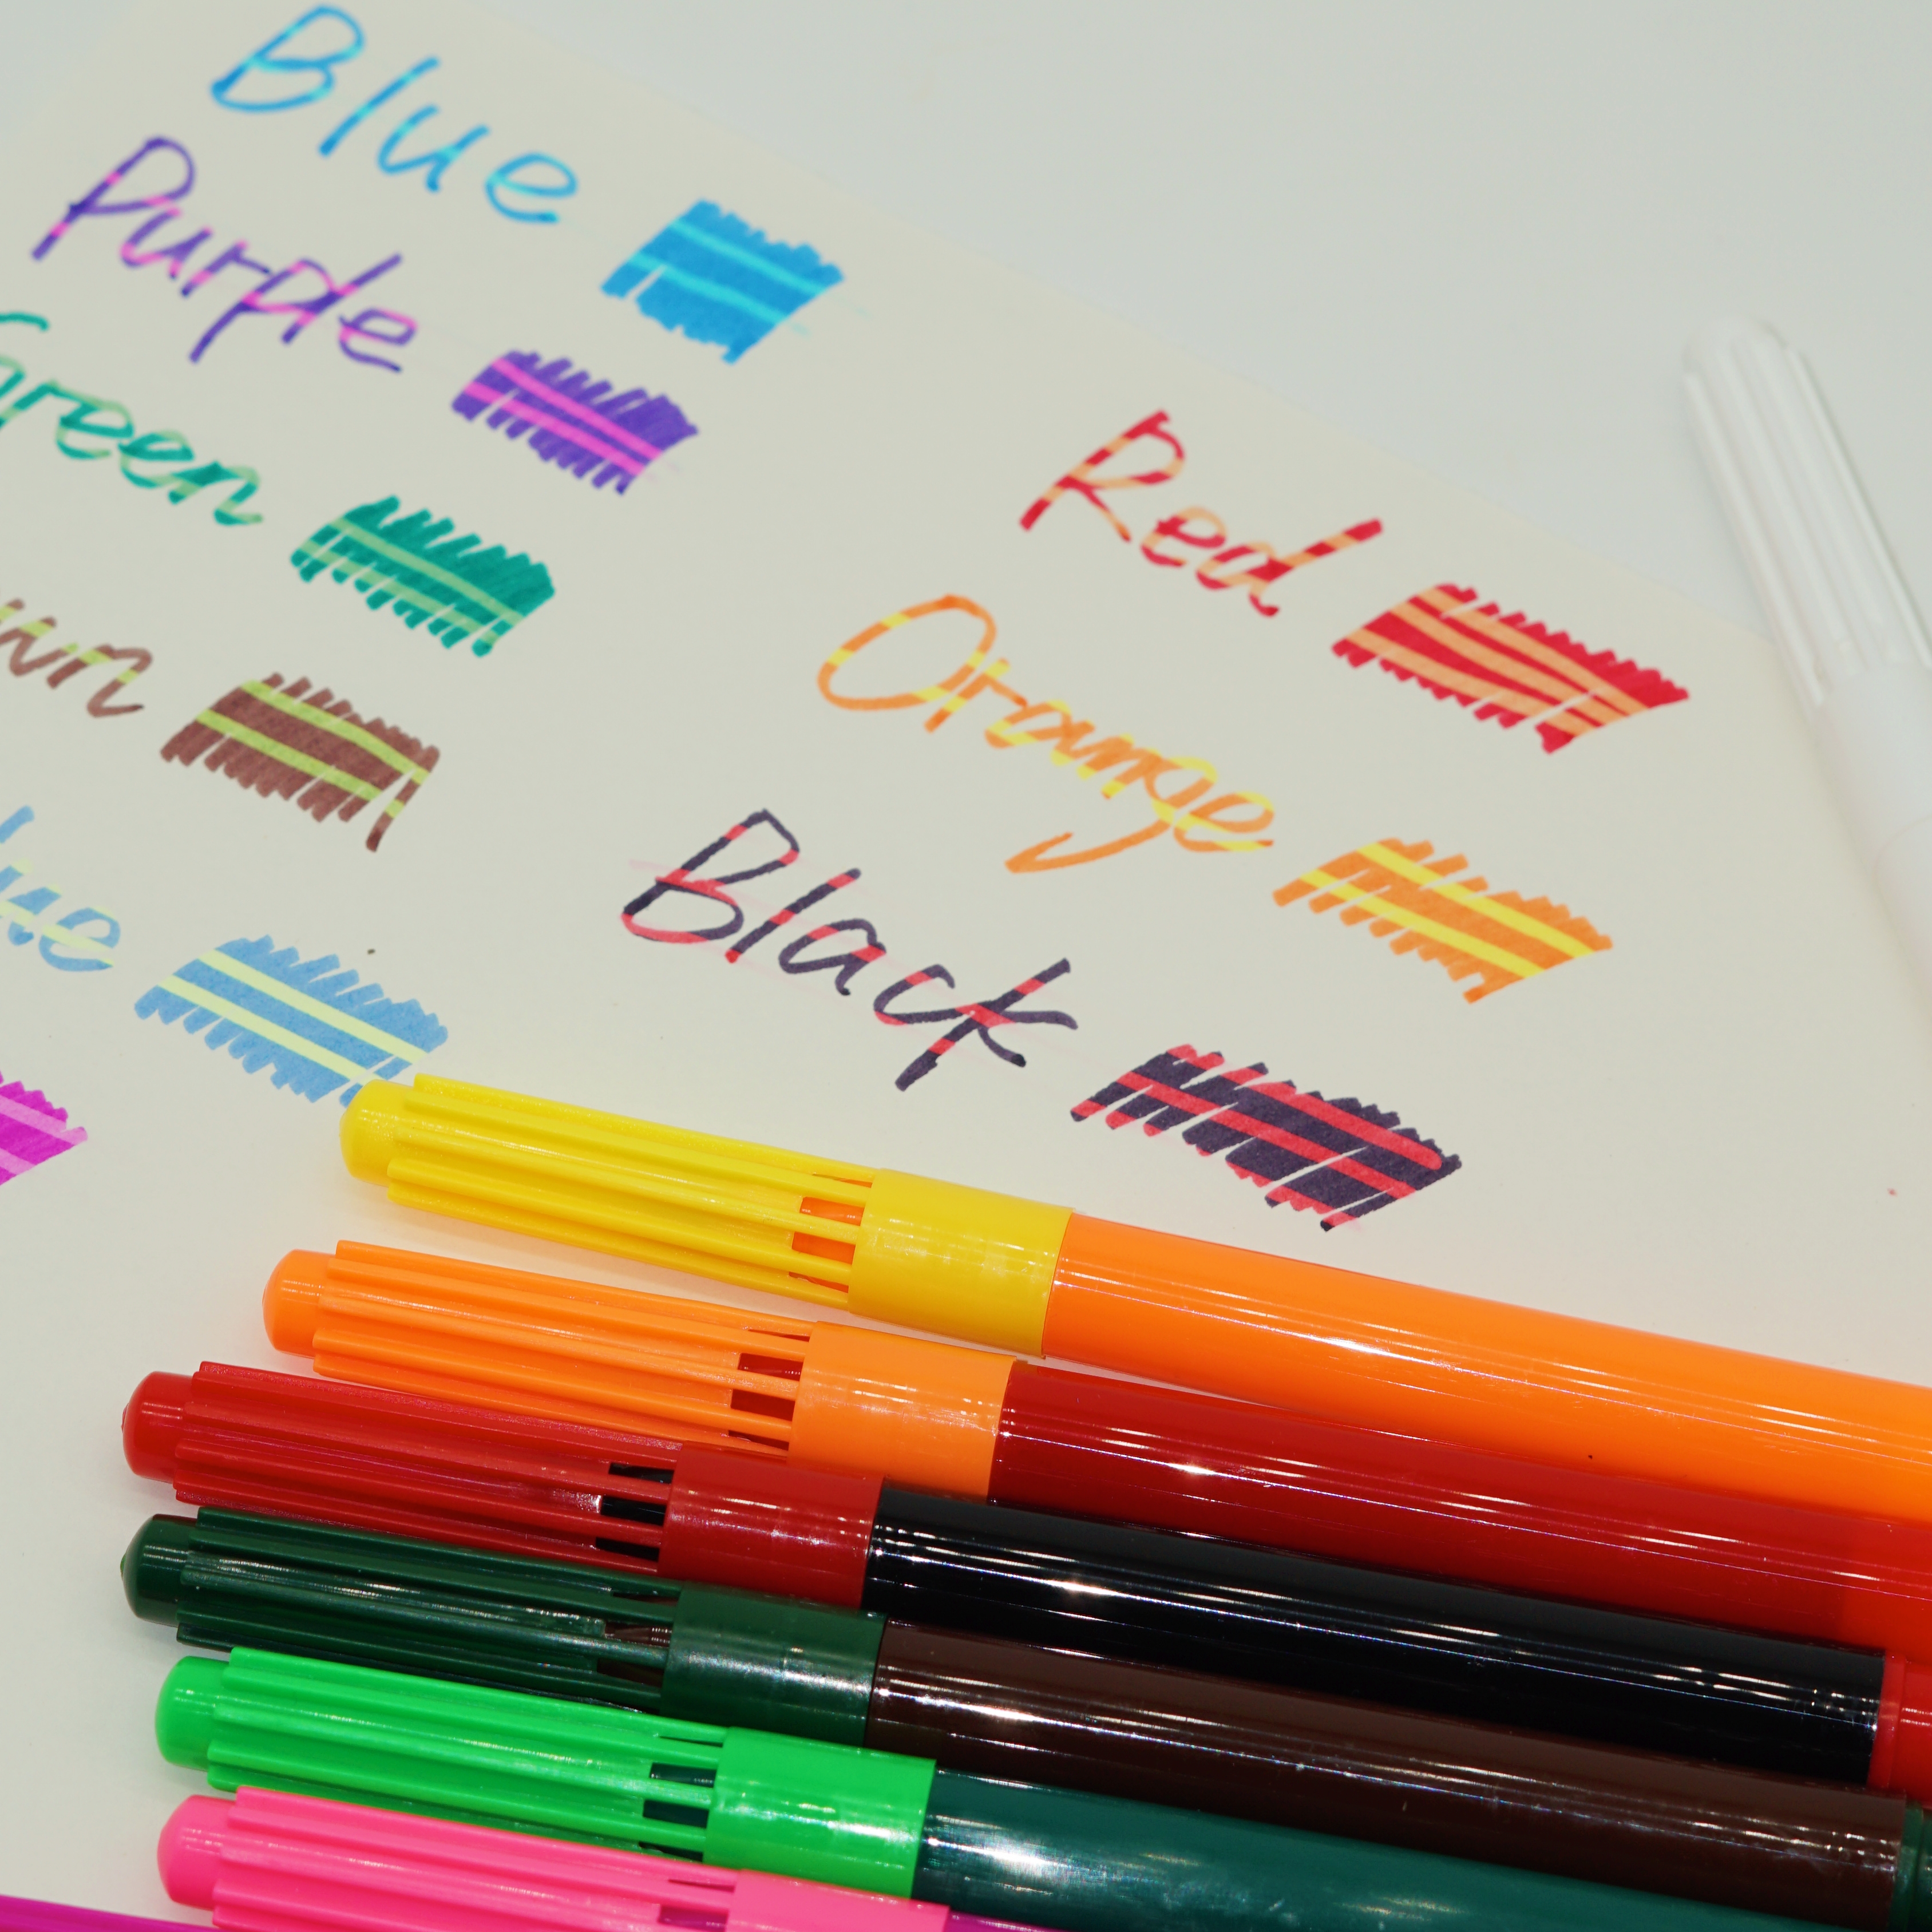 Blue
Purple
Green
wn
lue
Red
Orange
Black